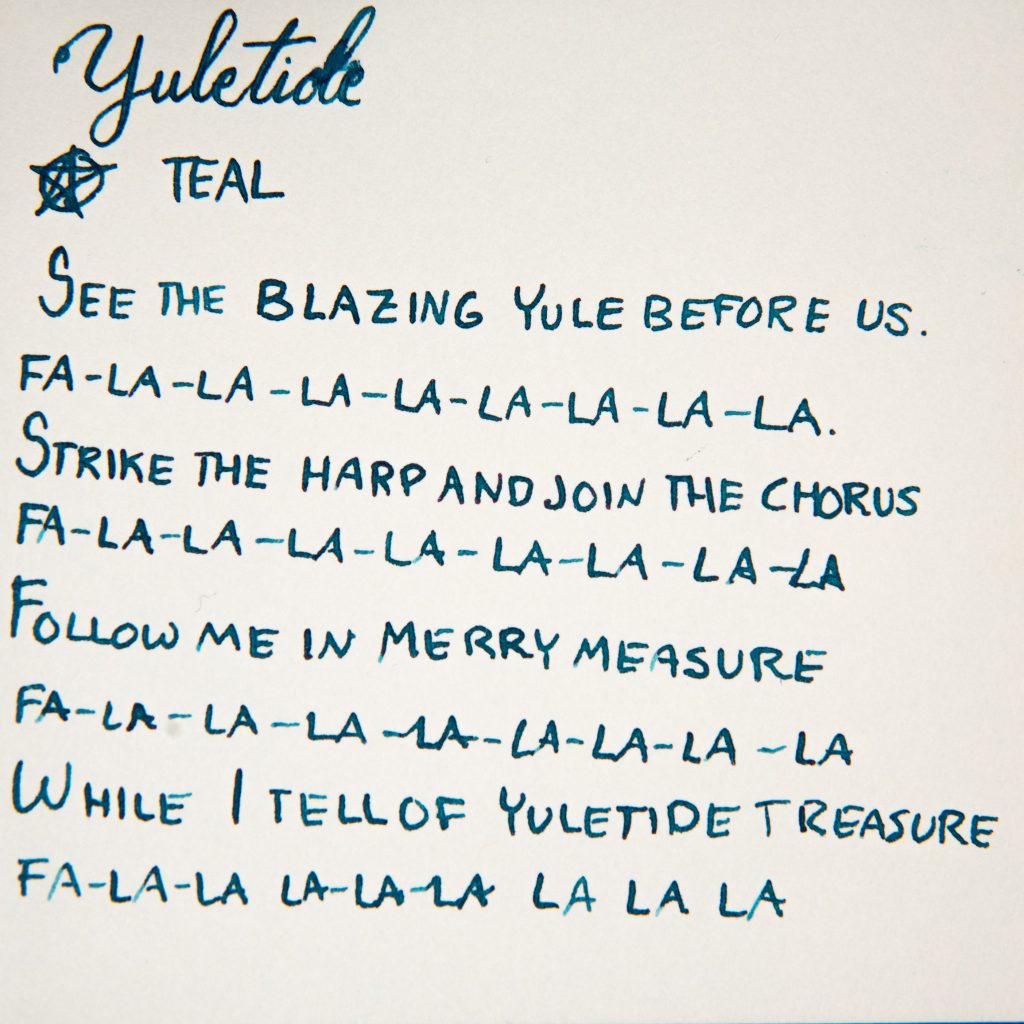 Yuletide
TEAL
SEE THE BLAZING YULE BEFORE US.
FA-LA-LA-LA-LA-LA-LA-LA-LA.
STRIKE THE HARP AND JOIN THE CHORUS
FA-LA-LA-LA-LA-LA-LA-LA-LA
FOLLOW ME IN MERRY MEASURE
FA-LA-LA-LA-LA-LA-LA-LA-LA
WHILE I TELL OF YULETIDE TREASURE
FA-LA-LA LA-LA-LA LA LA LA